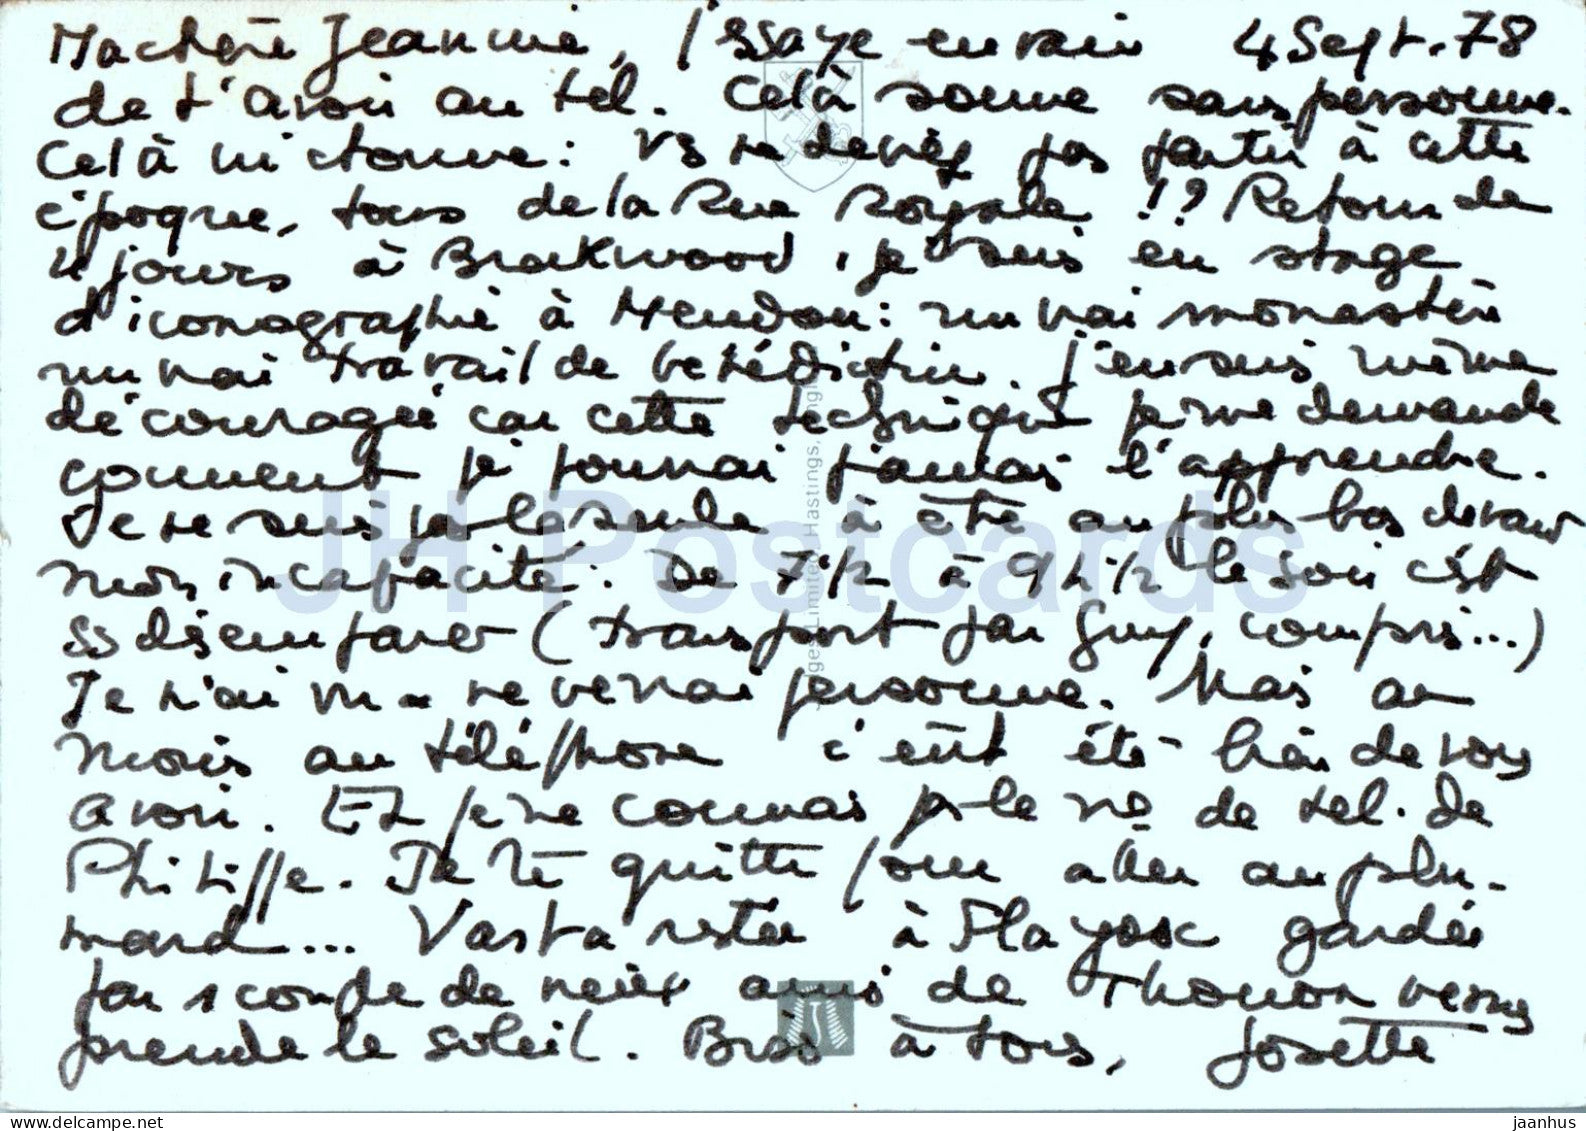 Ma chère Jeannine, J'essaye en vain 4 Sept. 78
de t'avoir au tél. Celà sonne sans personne.
Celà m'étonne : vs ne deviez pas partir à cette
époque, tous de la Rue Royale !? Retour de
4 jours à Brookwood, je suis en stage
d'iconographie à Meudon : un vrai monastère
un vrai travail de bénédictin. J'en suis même
découragée car cette technique je me demande
comment je pourrai jamais l'apprendre.
Je ne suis pas la seule à être au plus bas devant
mon incapacité. De 7 1/2 à 9 h 1/2 le soir c'est
ss désemparer (transport par Guy, compris...)
Je n'ai vu - ne verrai personne. Mais au
moins au téléphone c'eût été bien de vous
avoir. Et je ne connais pas le no de tél. de
Philippe. Je te quitte pour aller au plu-
mard... Vas ta rester à Flayosc gardée
par 1 couple de vieux amis de Thonon venus
prendre le soleil. Bises à tous, Josette
JH Postcards
Judges Limited, Hastings, England
jaanhus